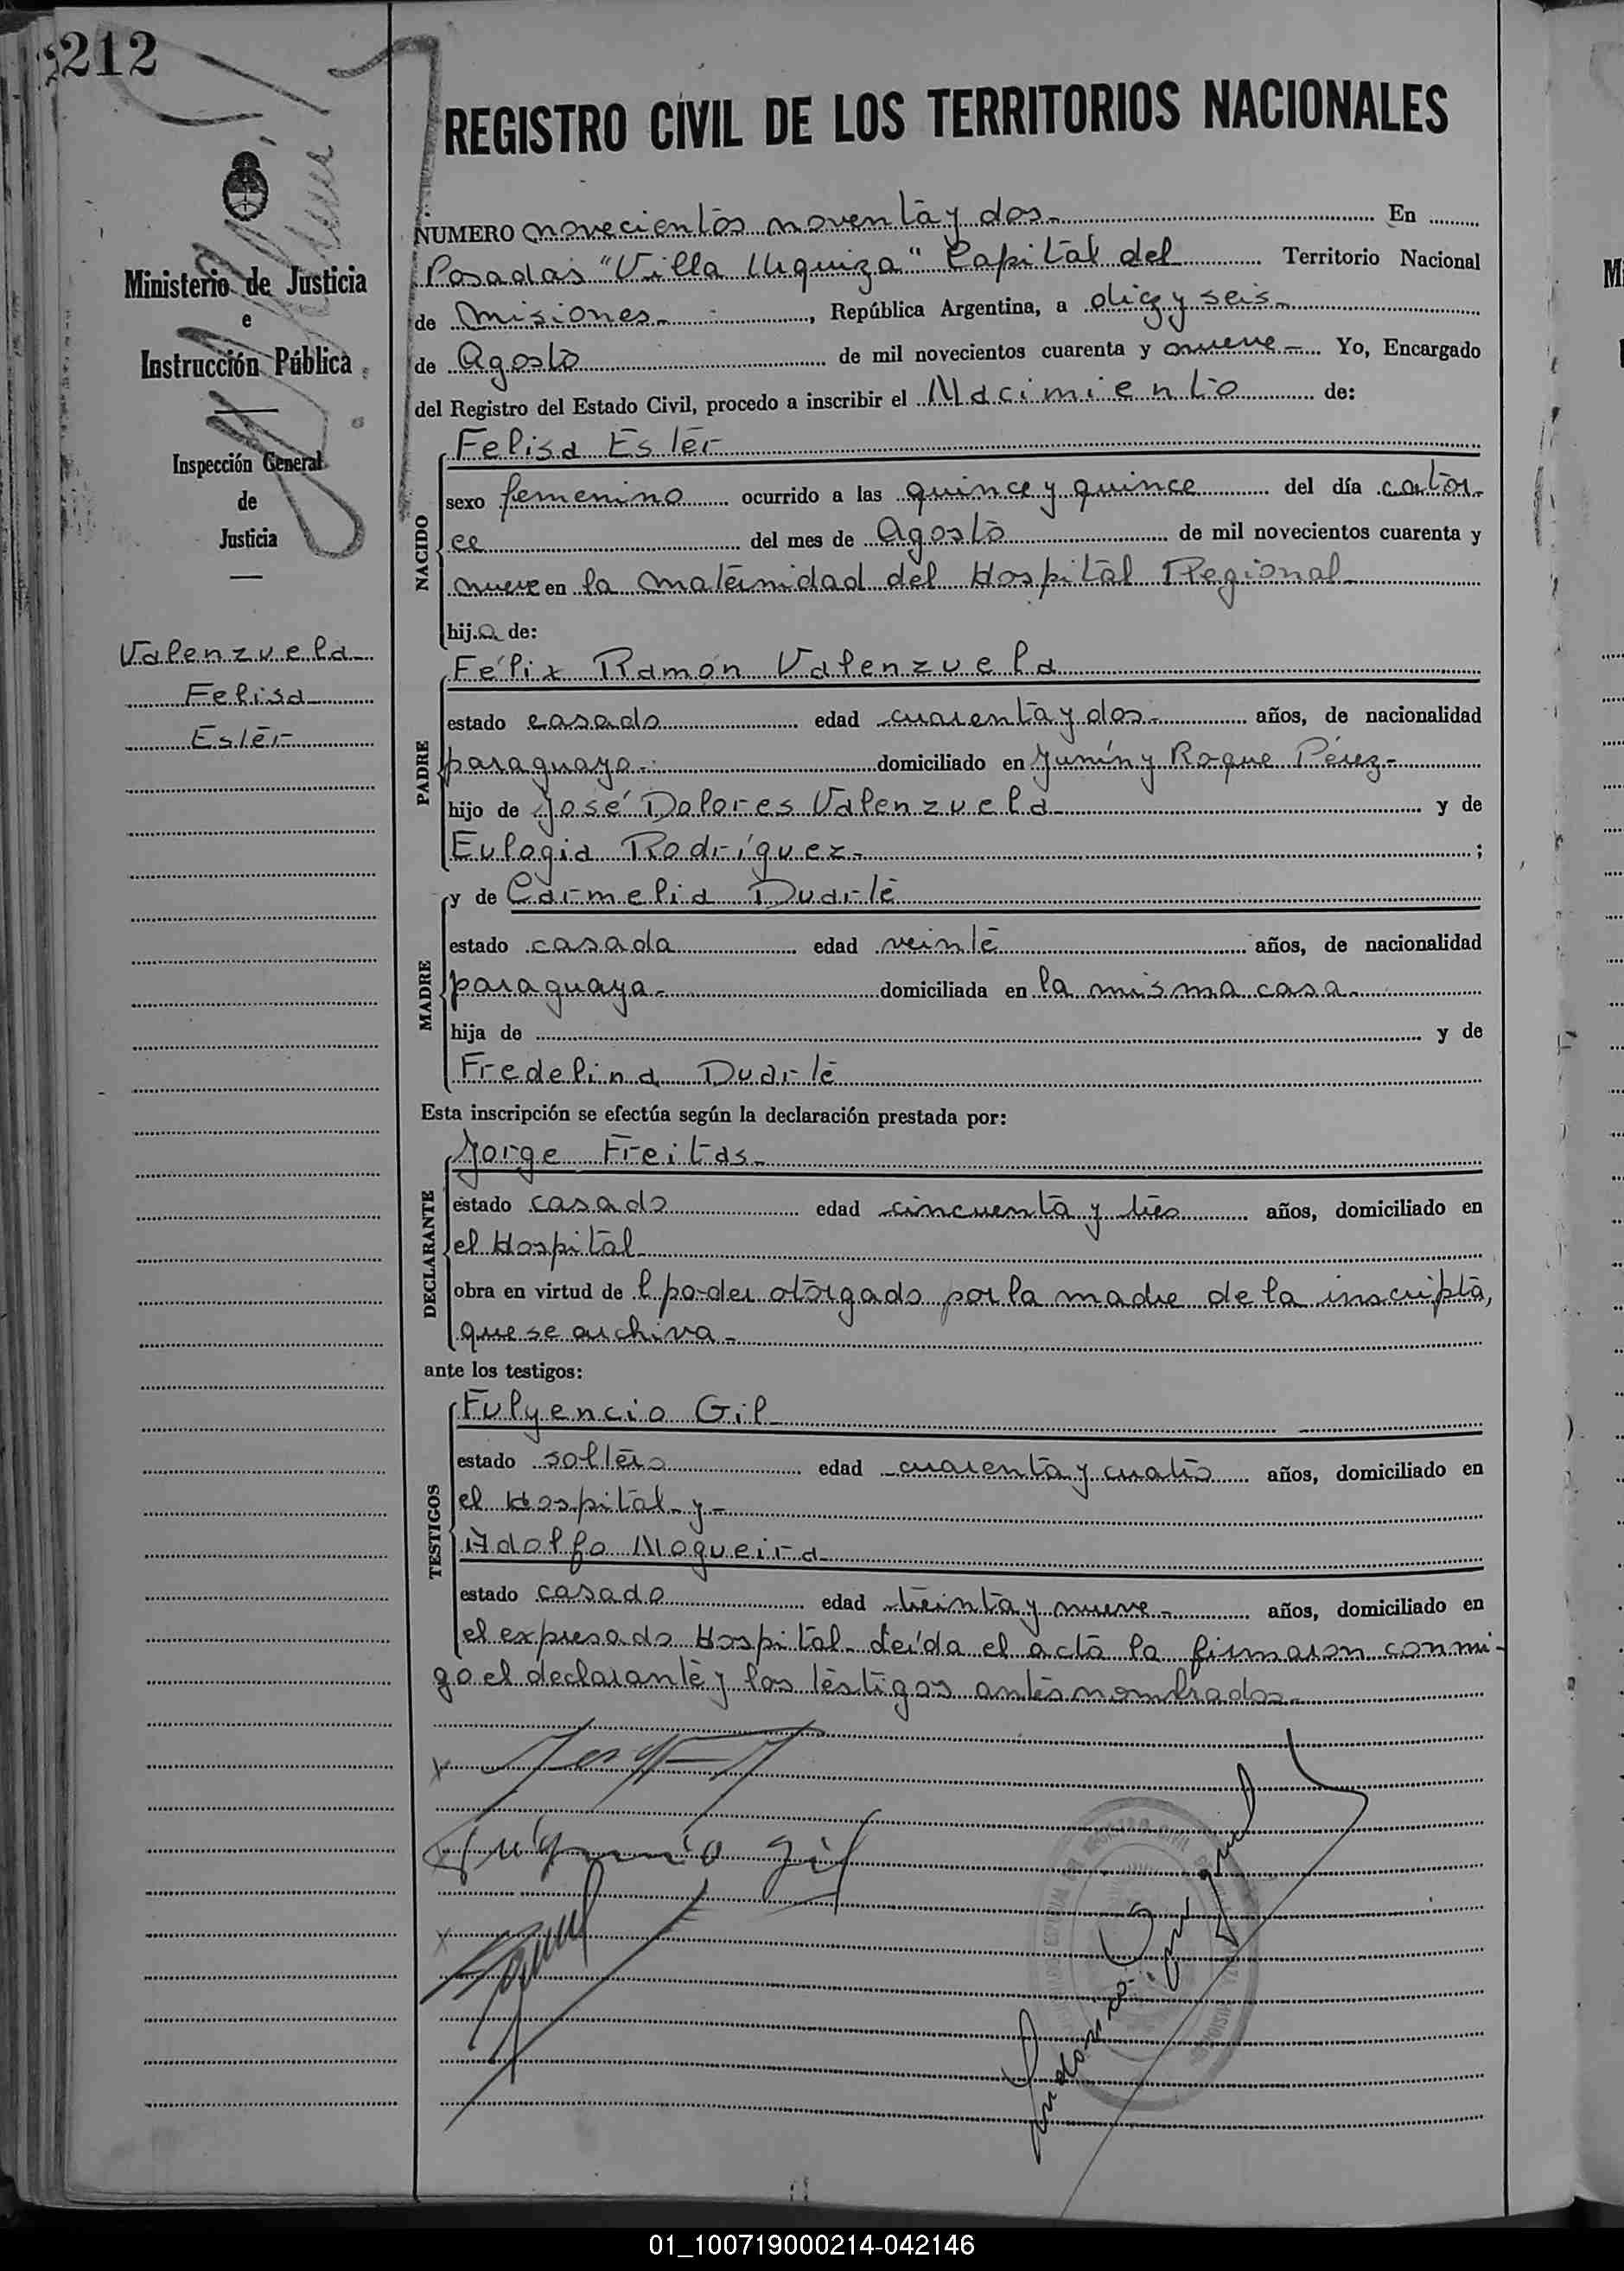 212
REGISTRO CIVIL DE LOS TERRITORIOS NACIONALES
Ministerio de Justicia
e
Instrucción Pública
Inspección General
de
Justicia
Valenzuela
Felisa
Ester
NUMERO novecientos noventa y dos - En
Posadas "Villa Urquiza" Capital del Territorio Nacional
de Misiones - , República Argentina, a diez y seis -
de Agosto de mil novecientos cuarenta y nueve - Yo, Encargado
del Registro del Estado Civil, procedo a inscribir el Nacimiento de:
NACIDO
Felisa Ester
sexo femenino ocurrido a las quince y quince del día cator-
ce del mes de Agosto de mil novecientos cuarenta y
nueve en la maternidad del Hospital Regional
hija de:
PADRE
Félix Ramón Valenzuela
estado casado edad cuarenta y dos - años, de nacionalidad
paraguayo - domiciliado en Junín y Roque Pérez -
hijo de José Dolores Valenzuela y de
Eulogia Rodríguez - ;
MADRE
y de Carmelia Duarte
estado casada edad veinte años, de nacionalidad
paraguaya - domiciliada en la misma casa -
hija de y de
Fredelina Duarte
Esta inscripción se efectúa según la declaración prestada por:
DECLARANTE
Jorge Freitas -
estado casado edad cincuenta y tres años, domiciliado en
el Hospital
obra en virtud de l poder otorgado por la madre de la inscripta,
que se archiva -
ante los testigos:
TESTIGOS
Fulgencio Gil
estado soltero edad cuarenta y cuatro años, domiciliado en
el Hospital y -
Adolfo Nogueira
estado casado edad treinta y nueve - años, domiciliado en
el expresado Hospital - Leída el acta la firmaron conmi-
go el declarante y los testigos antes nombrados -
Fulgencio Gil
01_100719000214-042146